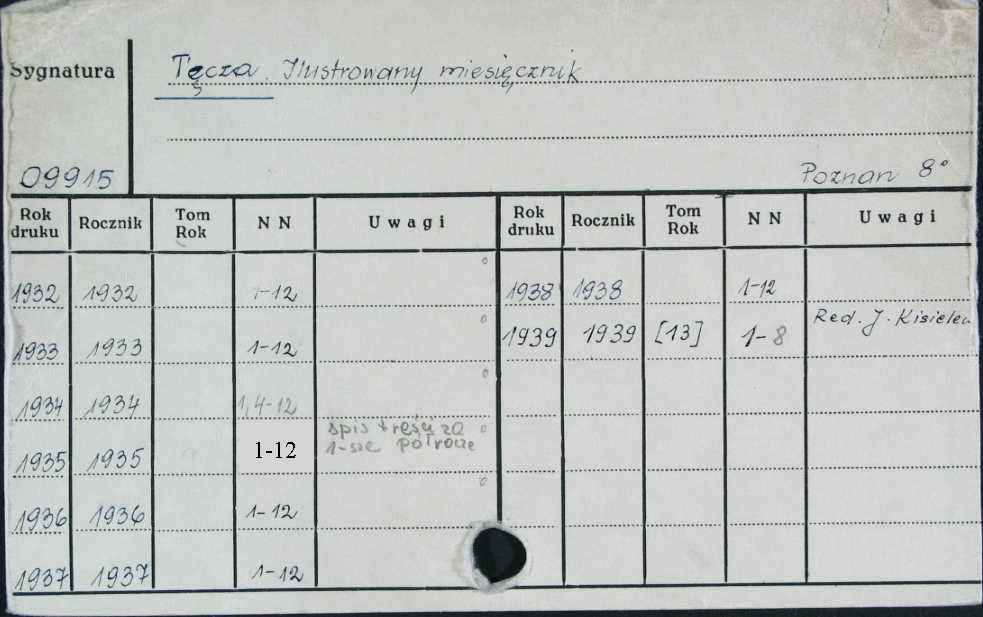 Sygnatura
Tęcza. Ilustrowany miesięcznik
09915
Poznań 8°
Rok druku Rocznik Tom Rok NN Uwagi Rok druku Rocznik Tom Rok NN Uwagi
1932 1932 1-12 1938 1938 1-12
1933 1933 1-12 1939 1939 [13] 1-8 Red. J. Kisielew
1934 1934 1,4-12
1935 1935 1-12 spis treści za
1-sze półrocze
1936 1936 1-12
1937 1937 1-12